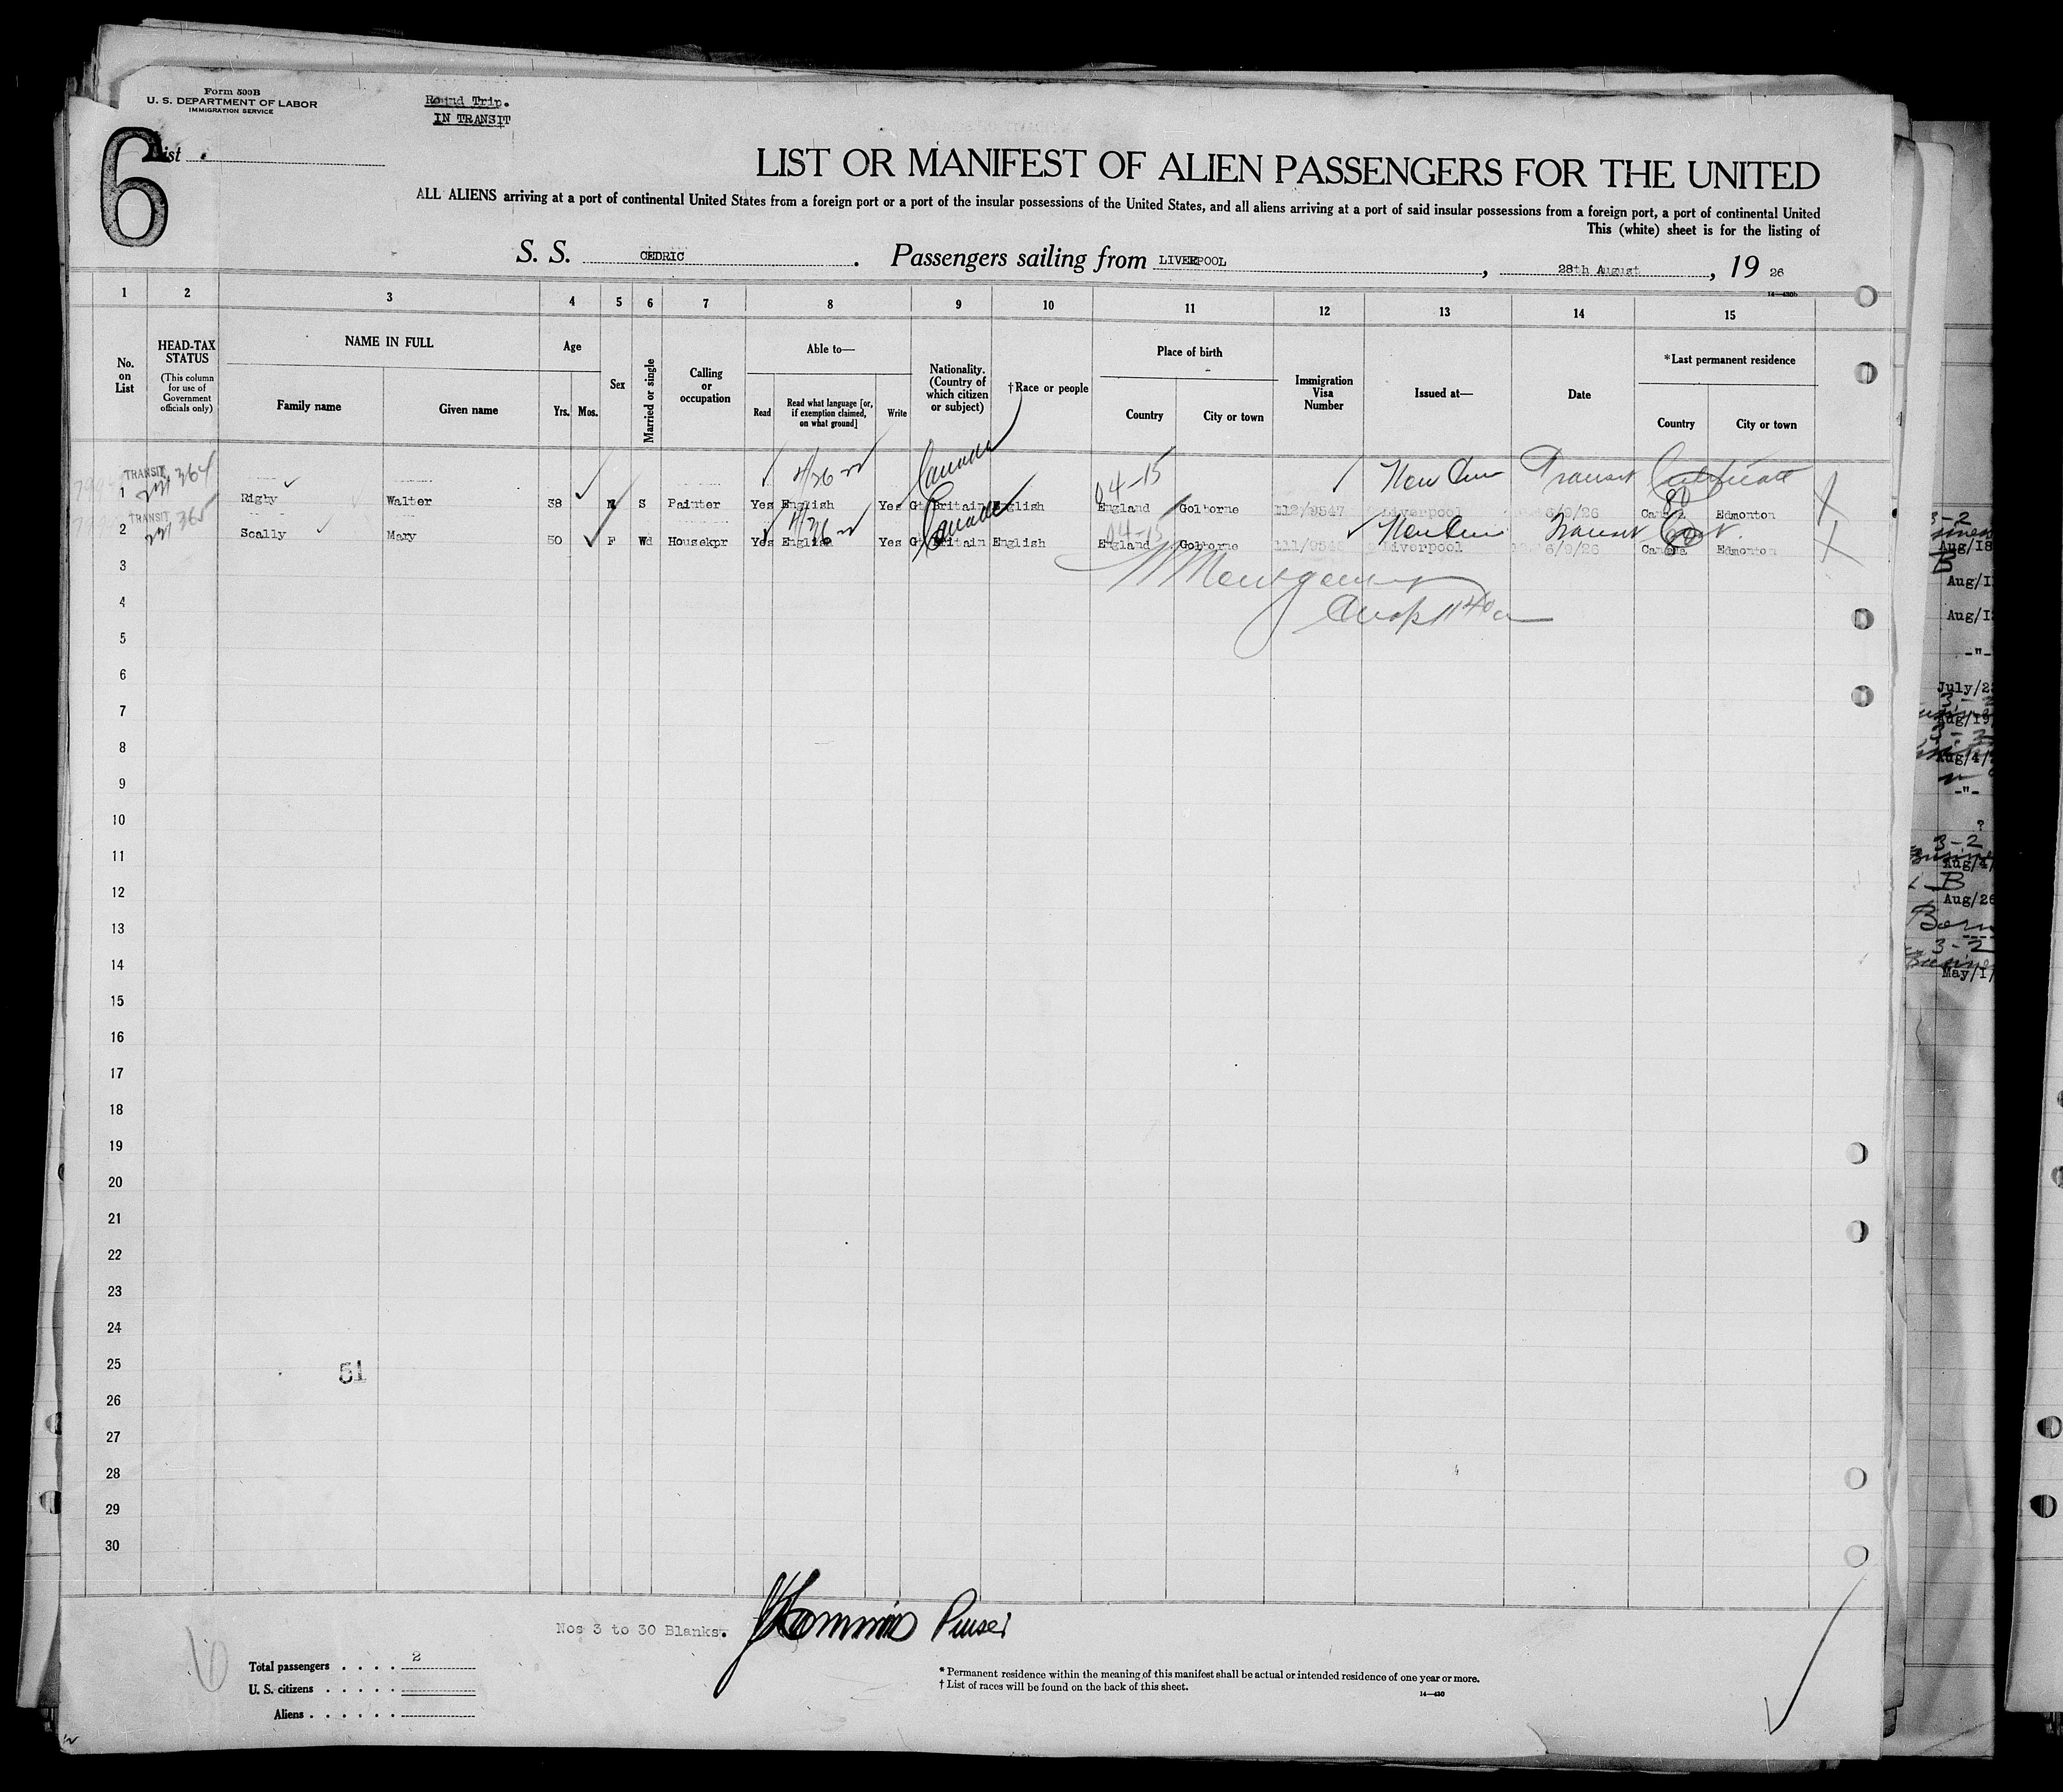 Form 500B
U. S. DEPARTMENT OF LABOR
IMMIGRATION SERVICE
Round Trip.
IN TRANSIT
6
List
LIST OR MANIFEST OF ALIEN PASSENGERS FOR THE UNITED
ALL ALIENS arriving at a port of continental United States from a foreign port or a port of the insular possessions of the United States, and all aliens arriving at a port of said insular possessions from a foreign port, a port of continental United
This (white) sheet is for the listing of
S. S. CEDRIC. Passengers sailing from LIVERPOOL, 28th August, 19 26
1 2 3 4 5 6 7 8 9 10 11 12 13 14 15
No. on List
HEAD-TAX STATUS (This column for use of Government officials only)
NAME IN FULL Family name Given name
Age Yrs. Mos.
Sex
Married or single
Calling or occupation
Able to— Read Read what language [or, if exemption claimed, on what ground] Write
Nationality. (Country of which citizen or subject)
†Race or people
Place of birth Country City or town
Immigration Visa Number
Issued at—
Date
*Last permanent residence Country City or town
TRANSIT 364 Canada 04-15 Transit Certificate
1 Rigby Walter 38 M S Painter Yes English Yes Gt Britain English England Golborne 112/9547 Liverpool 6/9/26 Canada Edmonton
TRANSIT 365 Canada 04-15 Transit
2 Scally Mary 50 F Wd Housekpr Yes English Yes Gt Britain English England Golborne Liverpool 6/9/26 Canada Edmonton
3
4
5
6
7
8
9
10
11
12
13
14
15
16
17
18
19
20
21
22
23
24
25
51
26
27
28
29
30
Nos 3 to 30 Blanks. Purser
Total passengers . . . . 2
U. S. citizens . . . . .
Aliens . . . . . .
* Permanent residence within the meaning of this manifest shall be actual or intended residence of one year or more.
† List of races will be found on the back of this sheet.
14—430
3-2
Aug/18
Aug/1
Aug/1
-"-
July/2
Aug/19
Aug/4/
-"-
?
3-2
Aug/4/
B
Aug/26
3-2
May/1/